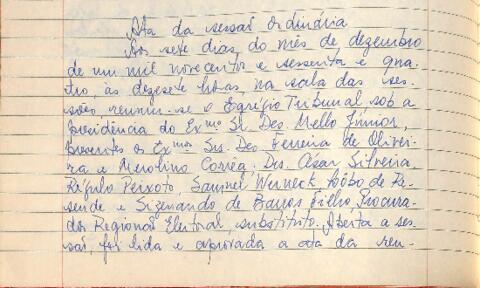 Ata da sessão ordinária
Aos sete dias, do mês de dezembro
de um mil novecentos e sessenta e qua-
tro, às dezesete horas, na sala das ses-
sões reuniu-se o Egrégio Tribunal sob a
Presidência do Exmo Sr. Des. Mello Júnior,
presentes os Exmos Srs. Des. Ferreira de Olivei-
ra e Merolino Corrêa, Drs. Cesar Silveira
Régulo Peixoto, Samuel Werneck, Lôbo de Re-
sende e Sizenando de Barros Filho Procura-
dor Regional Eleitoral, substituto. Aberta a ses-
são, foi lida e aprovada a ata da reu-